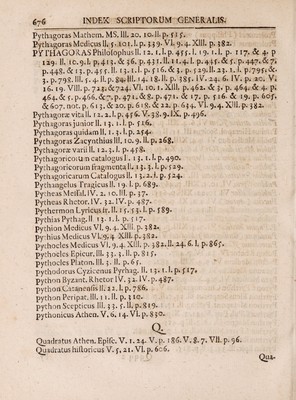 676 INDEX SCRIPTORUM GENERALIS.
Pythagoras Mathem. MS. III. 20. 10. II. p. 515.
Pythagoras Medicus II. 5. 101. l. p. 339. VI. 9. 4. XIII. p. 382.
PYTHAGORAS Philosophus II. 12. 1. l. p. 455. l. 19. 1. l. p. 117. & 4. p
129. II. 10. 9. l. p. 413. & 36. p. 431. II. 11. 4. l. p. 445. & 5. p. 447. & 7.
p. 448. & 13. p. 455. II. 13. 1. l. p. 516. & 3. p. 529. II. 23. 1. l. p. 795. &
3. p. 798. III. 5. 4. II. p. 84. III. 14. 18. II. p. 385. IV. 24. 6. IV. p. 20. V.
16. 19. VIII. p. 723. & 724. VI. 10. 1. XIII. p. 462. & 3. p. 464. & 4. p.
464. & 5. p. 466. & 7. p. 471. & 8. p. 471. & 17. p. 516. & 19. p. 605.
& 607. not. p. 613. & 20. p. 618. & 22. p. 634. VI. 9. 4. XIII. p. 382.
Pythagoræ vita II. 12. 2. l. p. 456. V. 38. 9. IX. p. 496.
Pythagoras junior II. 13. 1. l. p. 516.
Pythagoras quidam II. 1. 3. l. p. 254.
Pythagoras Zacynthius III. 10. 9. II. p. 268.
Pythagoræ varii II. 12. 3. l. p. 458.
Pythagoricorum catalogus l. 13. 1. l. p. 490.
Pythagoricorum fragmenta II. 13. 2. l. p. 529.
Pythagoricarum Catalogus II. 13. 2. l. p. 524.
Pythangelus Tragicus II. 19. l. p. 689.
Pytheas Messil. IV. 2. 10. III. p. 37.
Pytheas Rhetor. IV. 32. IV. p. 487.
Pythermon Lyricus II. II. 15. 53. l. p. 589.
Pythias Pythag. II. 13. 1. l. p. 517.
Pythion Medicus VI. 9. 4. XIII. p. 382.
Pythius Medicus VI. 9. 4. XIII. p. 382.
Pythocles Medicus VI. 9. 4. XIII. p. 382. II. 24. 6. l. p. 865.
Pythocles Epicur. III. 33. 3. II. p. 815.
Pythocles Platon. III. 3. II. p. 65.
Pythodorus Cyzicenus Pyrhag. II. 13. 1. l. p. 517.
Python Byzant. Rhetor IV. 32. IV. p. 487.
Python Catanensis II. 22. l. p. 786.
Python Peripat. III. 11. II. p. 310.
Python Scepticus III. 33. 5. II. p. 819.
Pythonicus Athen. V. 6. 14. VI. p. 830.
Q.
Quadratus Athen. Episc. V. 1. 24. V. p. 186. V. 8. 7. VII. p. 96.
Quadratus historicus V. 5. 21. VI. p. 606.
Qua-